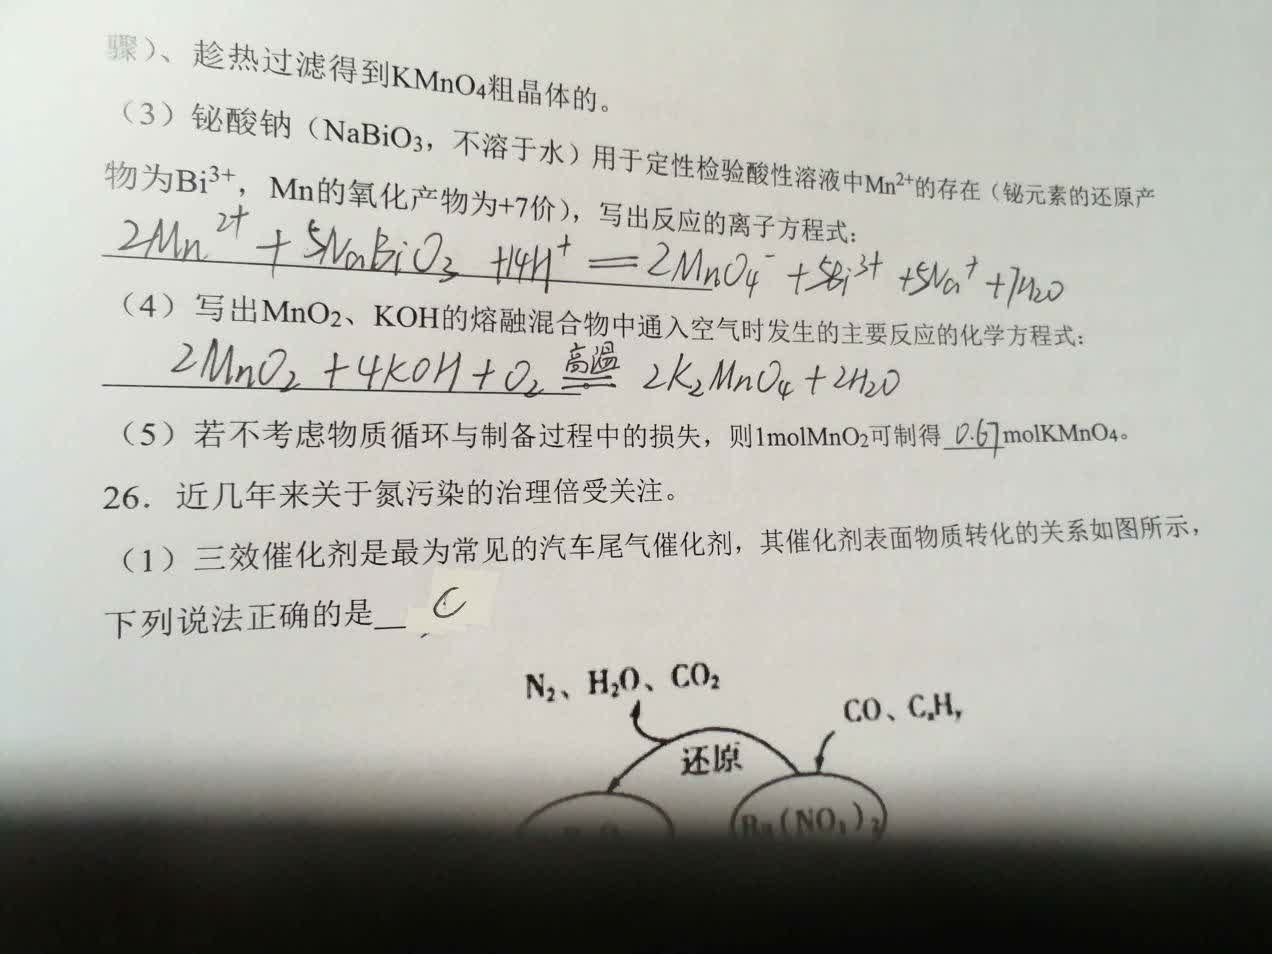 骤）、趁热过滤得到KMnO₄粗晶体的。
（3）铋酸钠（NaBiO₃，不溶于水）用于定性检验酸性溶液中Mn²⁺的存在（铋元素的还原产
物为Bi³⁺，Mn的氧化产物为+7价），写出反应的离子方程式：
2Mn²⁺+5NaBiO₃+14H⁺=2MnO₄⁻+5Bi³⁺+5Na⁺+7H₂O
（4）写出MnO₂、KOH的熔融混合物中通入空气时发生的主要反应的化学方程式：
高温
2MnO₂+4KOH+O₂=2K₂MnO₄+2H₂O
（5）若不考虑物质循环与制备过程中的损失，则1molMnO₂可制得0.67molKMnO₄。
26．近几年来关于氮污染的治理倍受关注。
（1）三效催化剂是最为常见的汽车尾气催化剂，其催化剂表面物质转化的关系如图所示，
下列说法正确的是 C
N₂、H₂O、CO₂
CO、CₓHᵧ
还原
Ba(NO₃)₂